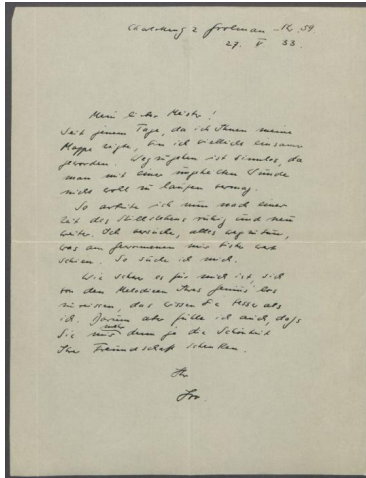 27. V 33.
Mein lieber Meister!
Seit jenem Tage, da ich Ihnen meine
Mappe zeigte, bin ich vielleicht einsamer
geworden. Wegzugehen ist sinnlos, da
man mit einer ungeheilten Wunde
nicht wohl zu laufen vermag.
So arbeite ich nun nach einer
Zeit des Stillstehens ruhig und neu
weiter. Ich versuche, alles wegzutun,
was am gewonnenen mir bisher wert
schien. So suche ich mich.
Wie schwer es für mich ist, sich
von den Melodien Ihres Genius' los
zu reissen, das wissen Sie besser als
ich. Darum aber fühle ich auch, dass
Sie mir mehr denn je die Schönheit
Ihrer Freundschaft schenken.
Ihr